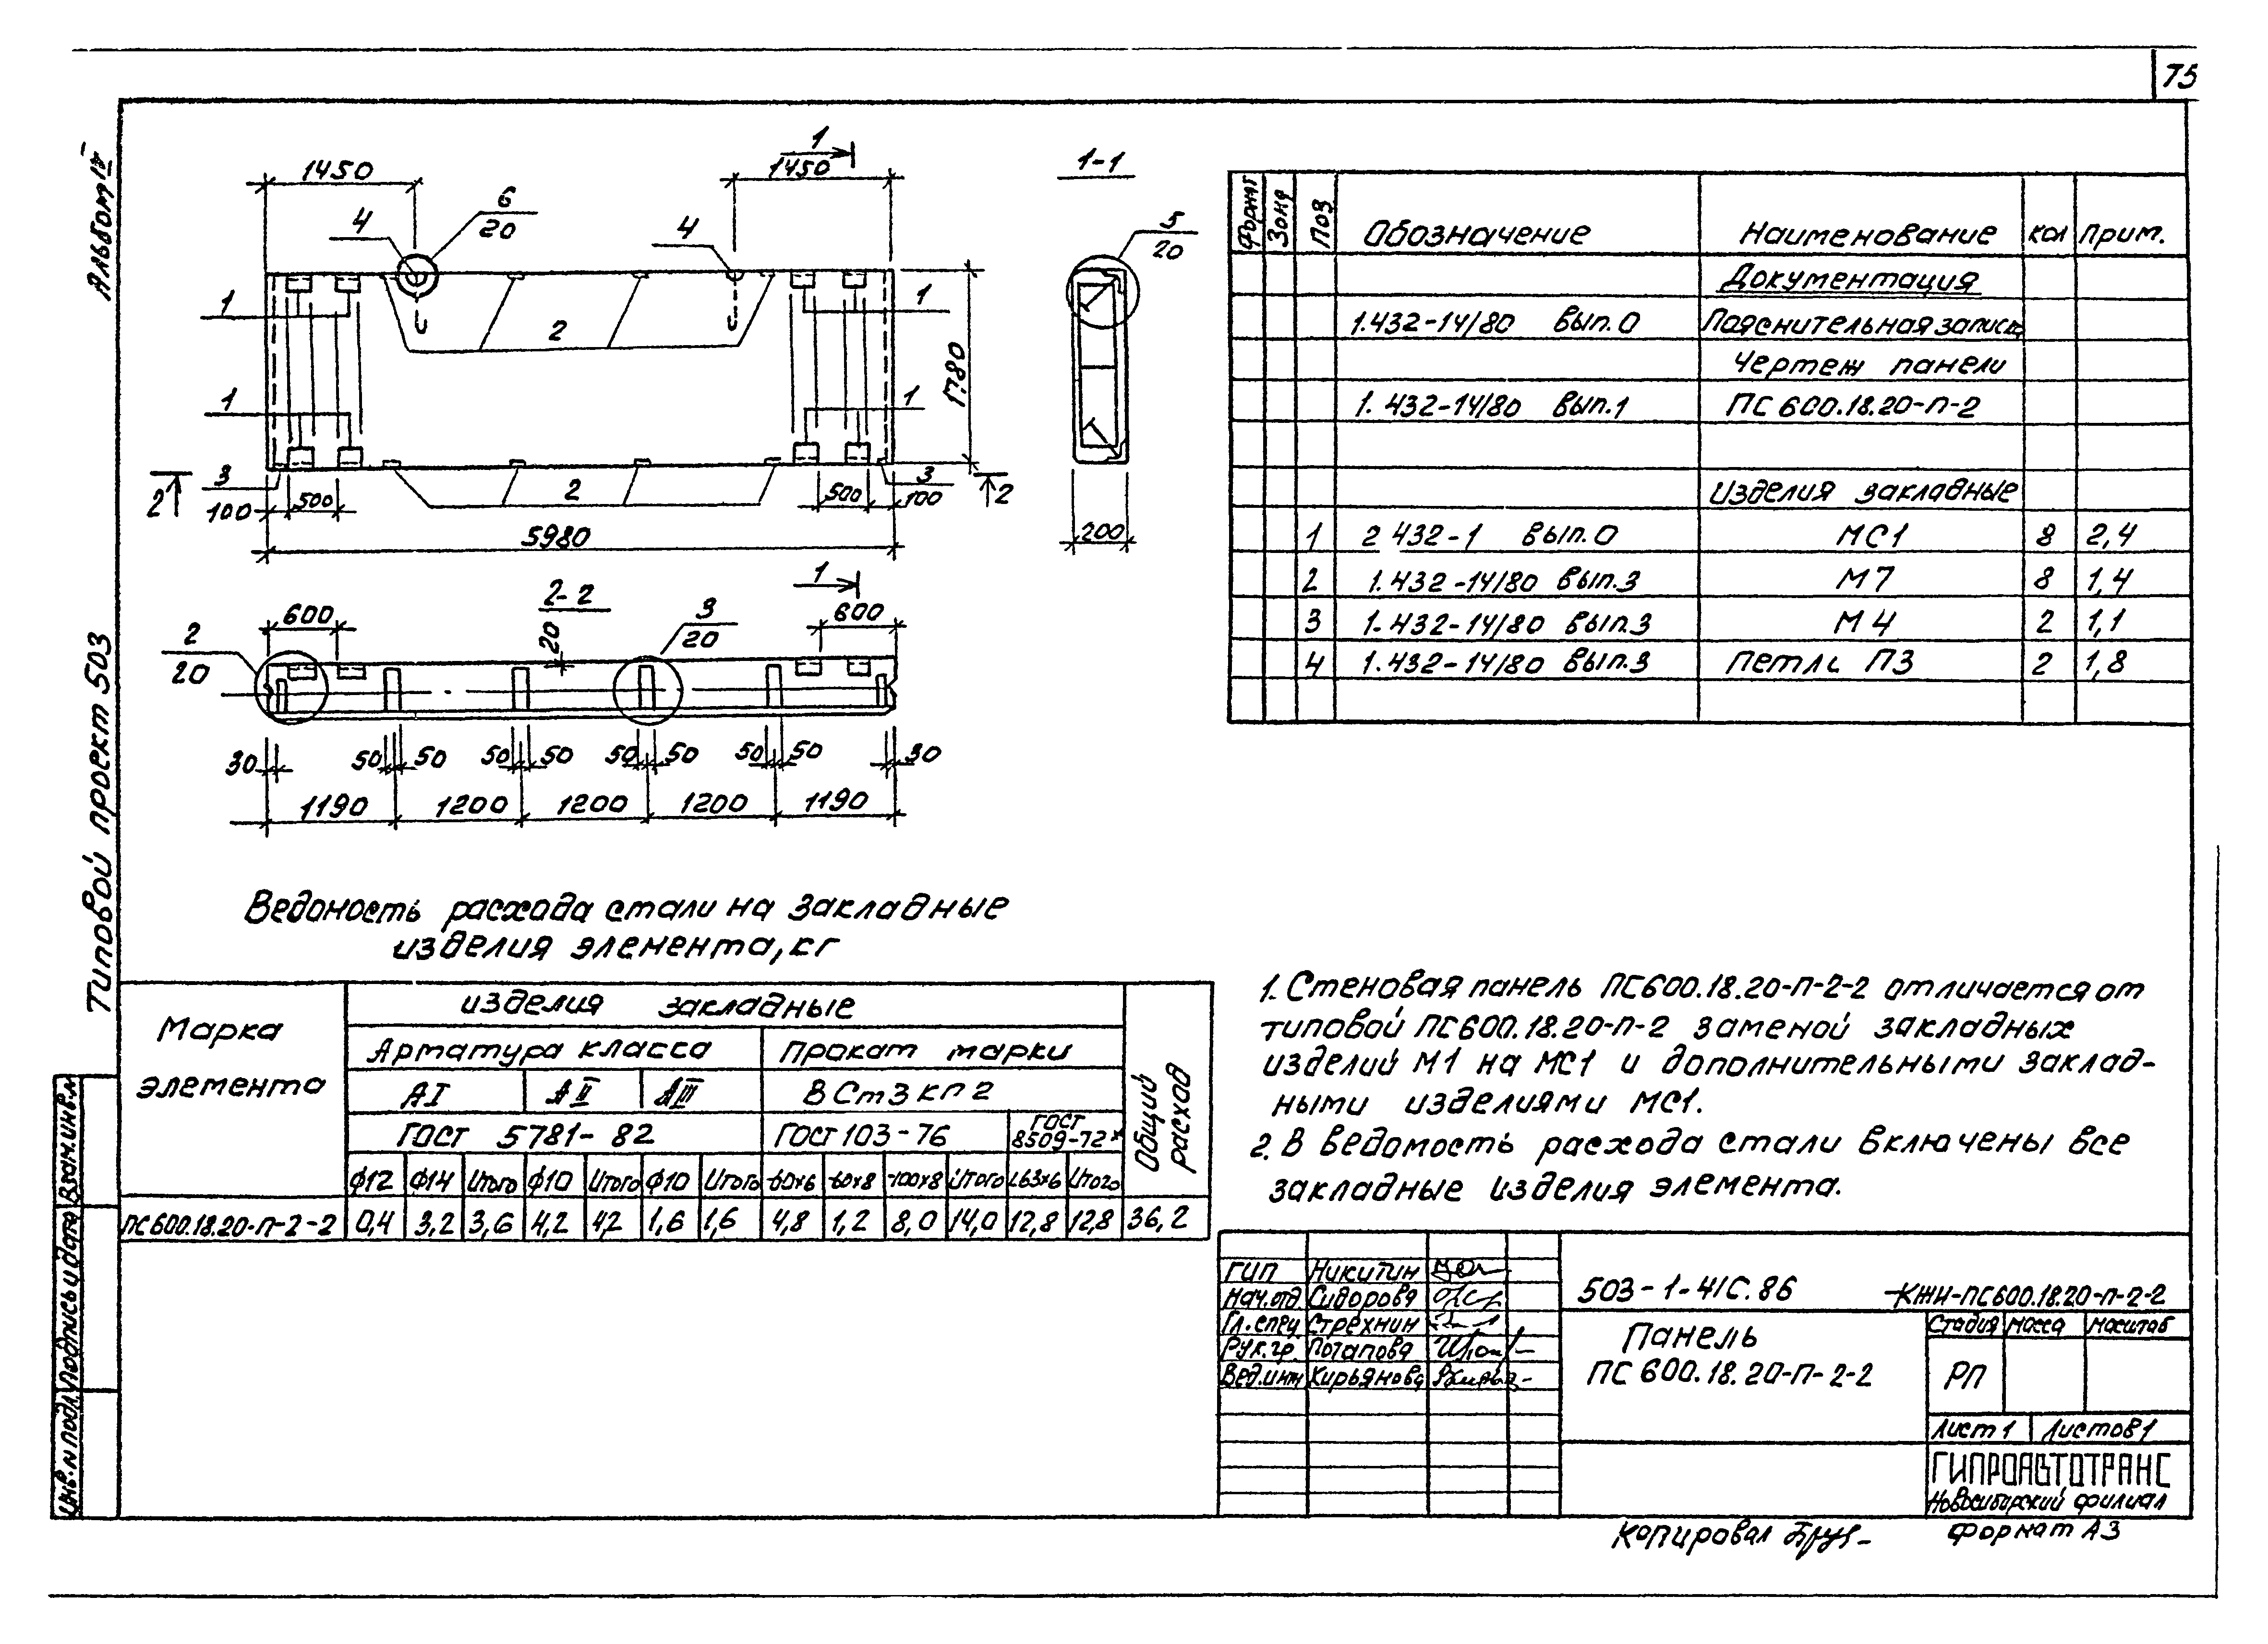 75
Альбом IV
Типовой проект 503
1450
1
1450
1-1
6
20
4
4
5
20
1
1
2
1780
1
1
3
2
3
2
2
100
500
500
100
5980
200
2-2
1
600
20
3
20
600
2
20
30
50
50
50
50
50
50
50
50
30
1190
1200
1200
1200
1190
Формат Зона Поз Обозначение Наименование кол Прим.
Документация
1.432-14/80 Вып.0 Пояснительная записка
Чертеж панели
1.432-14/80 Вып.1 ПС 600.18.20-П-2
Изделия закладные
1 2 432-1 Вып.0 МС1 8 2,4
2 1.432-14/80 Вып.3 М7 8 1,4
3 1.432-14/80 Вып.3 М4 2 1,1
4 1.432-14/80 Вып.3 Петля П3 2 1,8
Ведомость расхода стали на закладные
изделия элемента, кг
Марка
элемента
изделия закладные
Общий
расход
Арматура класса Прокат марки
АI АII АIII ВСт3кп2
ГОСТ 5781-82 ГОСТ 103-76 ГОСТ 8509-72*
Ф12 Ф14 Итого Ф10 Итого Ф10 Итого -60х6 -60х8 -100х8 Итого L63х6 Итого
ПС600.18.20-П-2-2 0,4 3,2 3,6 4,2 42 1,6 1,6 4,8 1,2 8,0 14,0 12,8 12,8 36,2
1. Стеновая панель ПС600.18.20-П-2-2 отличается от
типовой ПС600.18.20-П-2 заменой закладных
изделий М1 на МС1 и дополнительными заклад-
ными изделиями МС1.
2. В ведомость расхода стали включены все
закладные изделия элемента.
ГИП Никитин
Нач.отд Сидорова
Гл.спец Стрехнин
Рук.гр. Потапова
Вед.инж Кирьянова
503-1-41С.86 -КЖИ-ПС600.18.20-П-2-2
Панель
ПС 600.18.20-П-2-2
Стадия Масса Масштаб
РП
Лист 1 Листов 1
ГИПРОАВТОТРАНС
Новосибирский филиал
Копировал
Формат А3
Взам.инв.№
Подпись и дата
Инв.№подл.